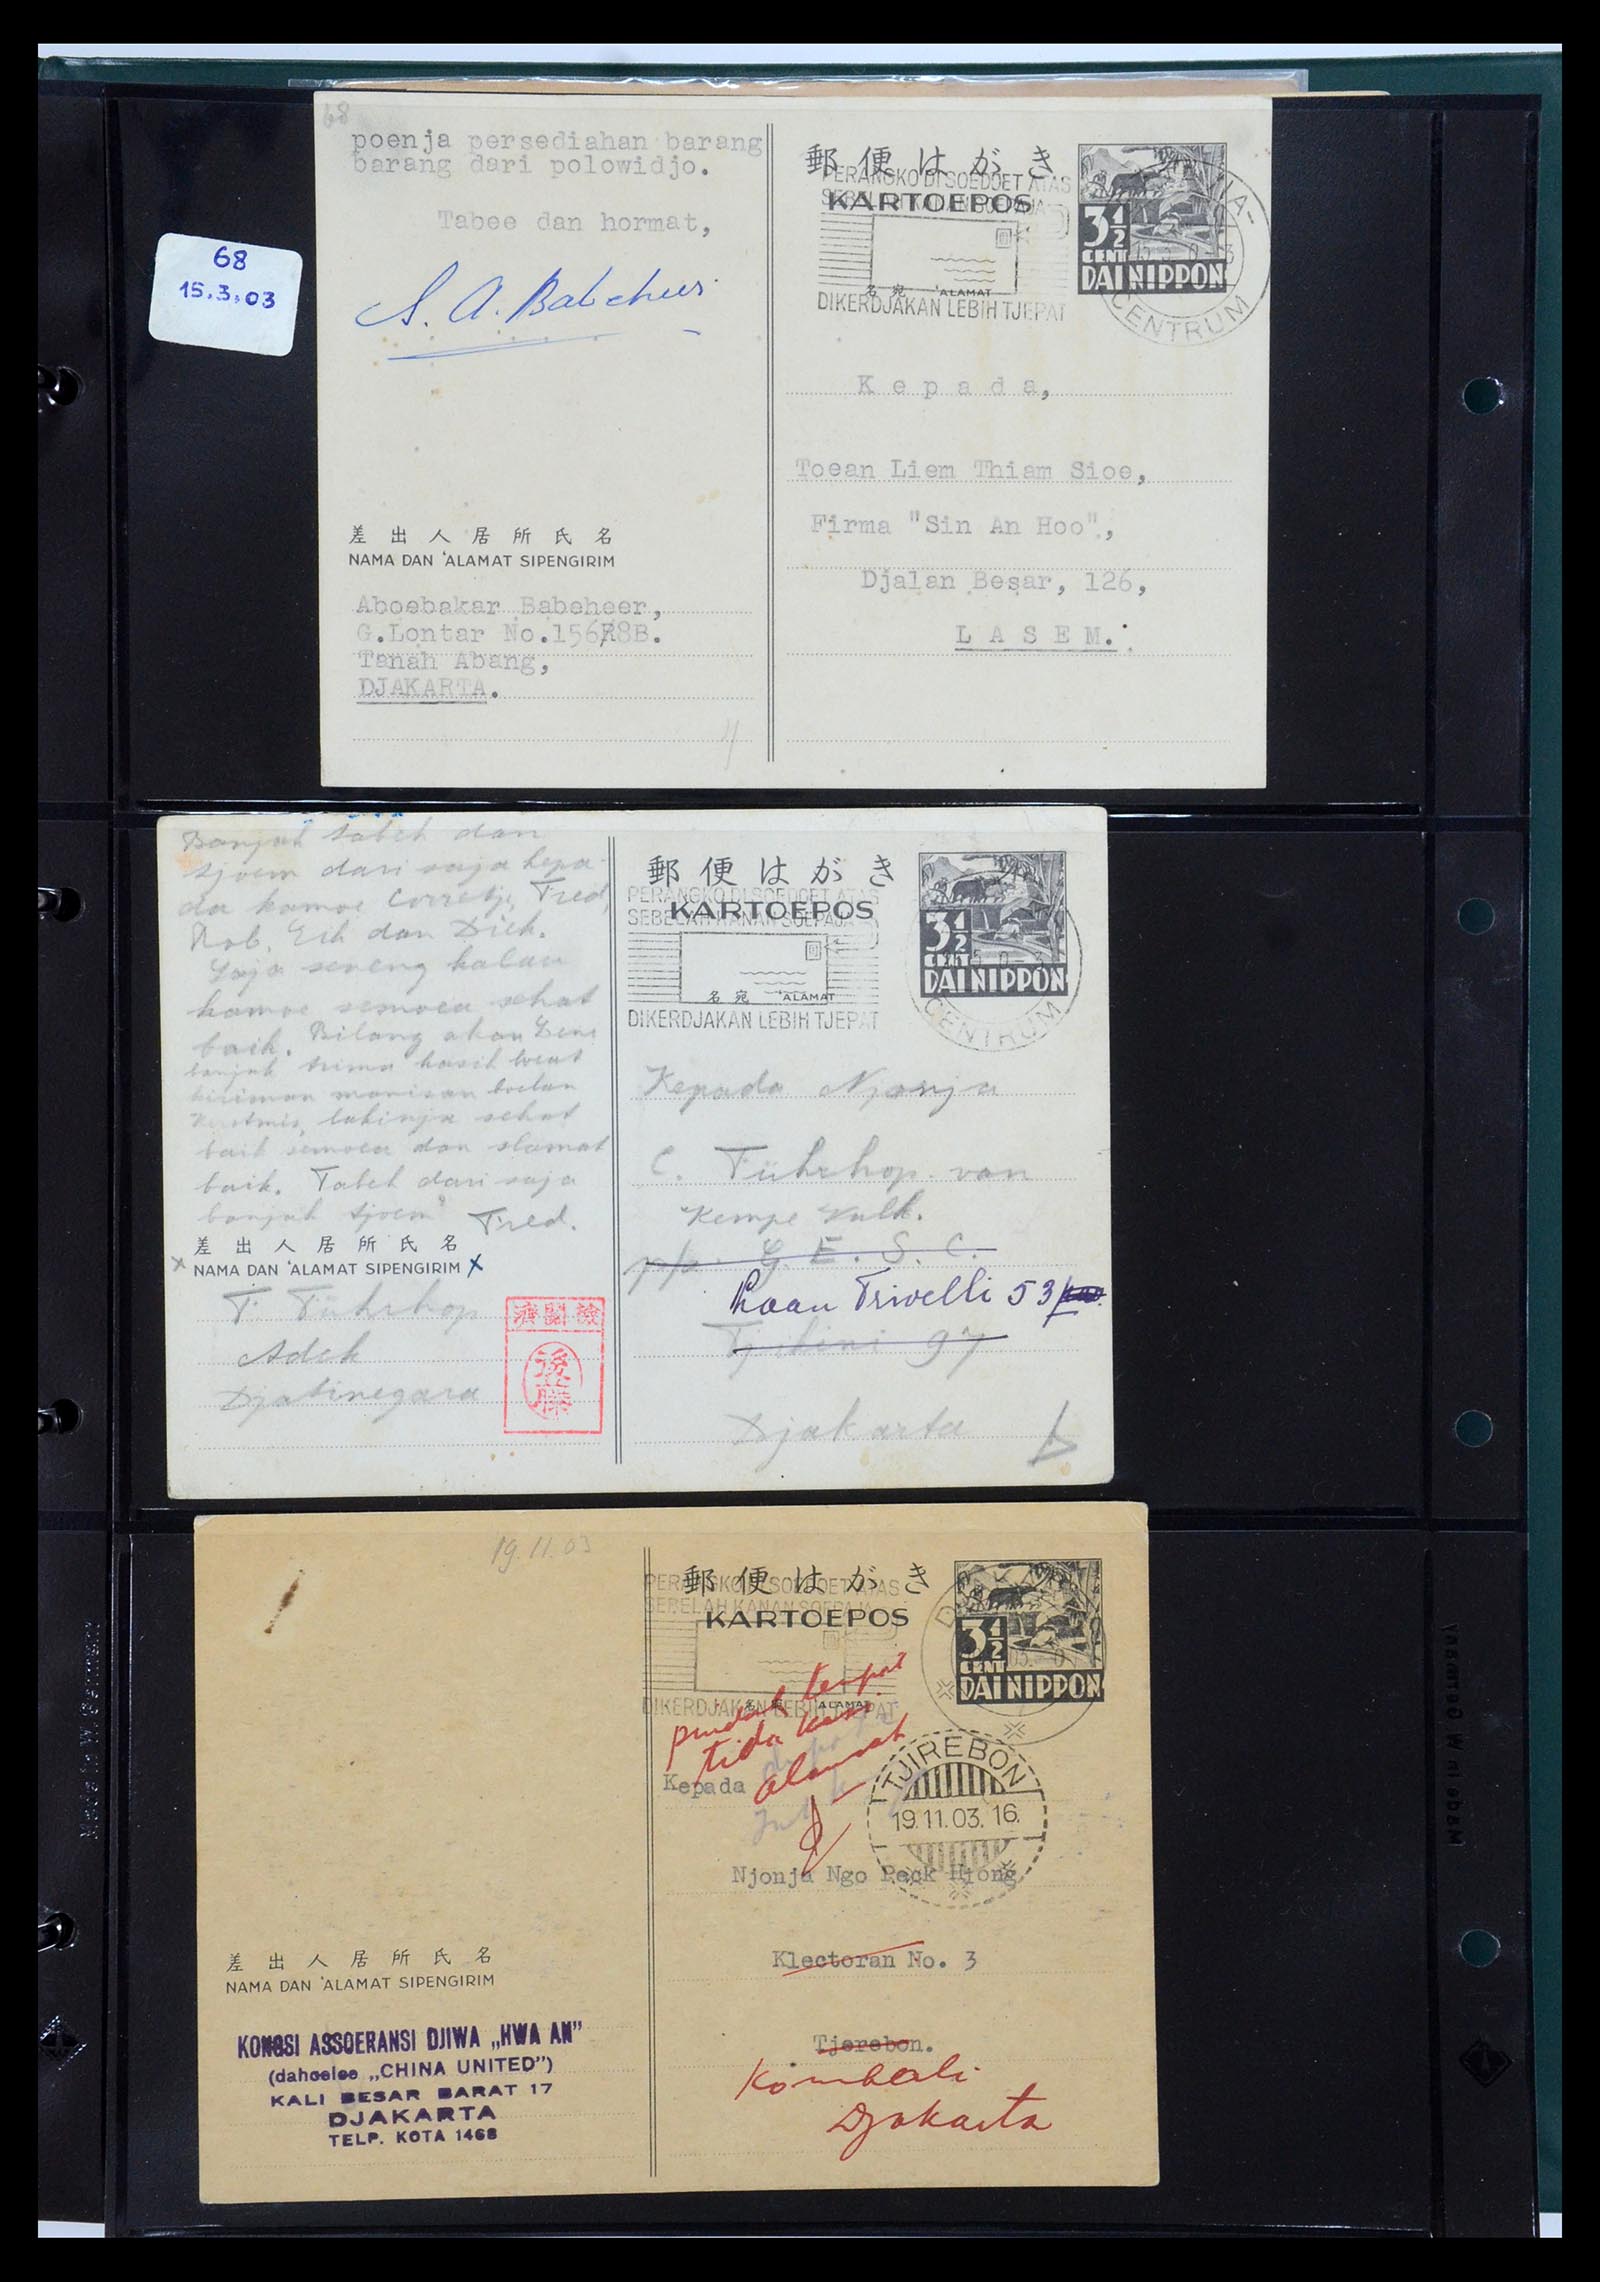 68
poenja persediahan barang
barang dari polowidjo.
Tabee dan hormat,
68
15.3.03
差出人居所氏名
NAMA DAN 'ALAMAT SIPENGIRIM
Aboebakar Babeheer,
G.Lontar No.156R8B.
Tanah Abang,
DJAKARTA.
郵便はがき
PERANGKO DI SOEDOET ATAS
KARTOEPOS
3½
CENT
DAI NIPPON
名宛 'ALAMAT
DIKERDJAKAN LEBIH TJEPAT
CENTRUM
Kepada,
Toean Liem Thiam Sioe,
Firma "Sin An Hoo",
Djalan Besar, 126,
LASEM.
Banjak tabeh dan
tjoem dari saja kepa-
da kamoe Corretje, Fred,
Rob, Eih dan Dick.
Saja seneng kalau
kamoe semoea sehat
baik. Bilang akan
banjak trima kasih boeat
kiriman manisan boelan
Kerstmis, sehat
baik semoea dan slamat
baik. Tabeh dari saja
banjak tjoem Fred.
差出人居所氏名
x NAMA DAN 'ALAMAT SIPENGIRIM x
F. Führhop
Adek
Djatinegara
検閲済
後藤
郵便はがき
PERANGKO DI SOEDOET ATAS
SEBELAH KANAN SOEPAJA
KARTOEPOS
3½
CENT
DAI NIPPON
名宛 'ALAMAT
DIKERDJAKAN LEBIH TJEPAT
CENTRUM
Kepada Njonja
C. Führhop van
Kempe Valk.
p/a. G. E. S. C.
Laan Trivelli 53
Tjikini 97
Djakarta
19.11.03
差出人居所氏名
NAMA DAN 'ALAMAT SIPENGIRIM
KONGSI ASSOERANSI DJIWA „HWA AN"
(dahoeloe „CHINA UNITED")
KALI BESAR BARAT 17
DJAKARTA
TELP. KOTA 1468
郵便はがき
PERANGKO DI SOEDOET ATAS
SEBELAH KANAN SOEPAJA
KARTOEPOS
3½
CENT
DAI NIPPON
名宛 'ALAMAT
DIKERDJAKAN LEBIH TJEPAT
pindah tempat
tida kasi
alamat
TJIREBON
19.11.03. 16.
Kepada
Njonja Ngo Peck Hiong
Klectoran No. 3
Tjerebon.
Kombali
Djakarta
Made in W. Germany
Made in W. Germany